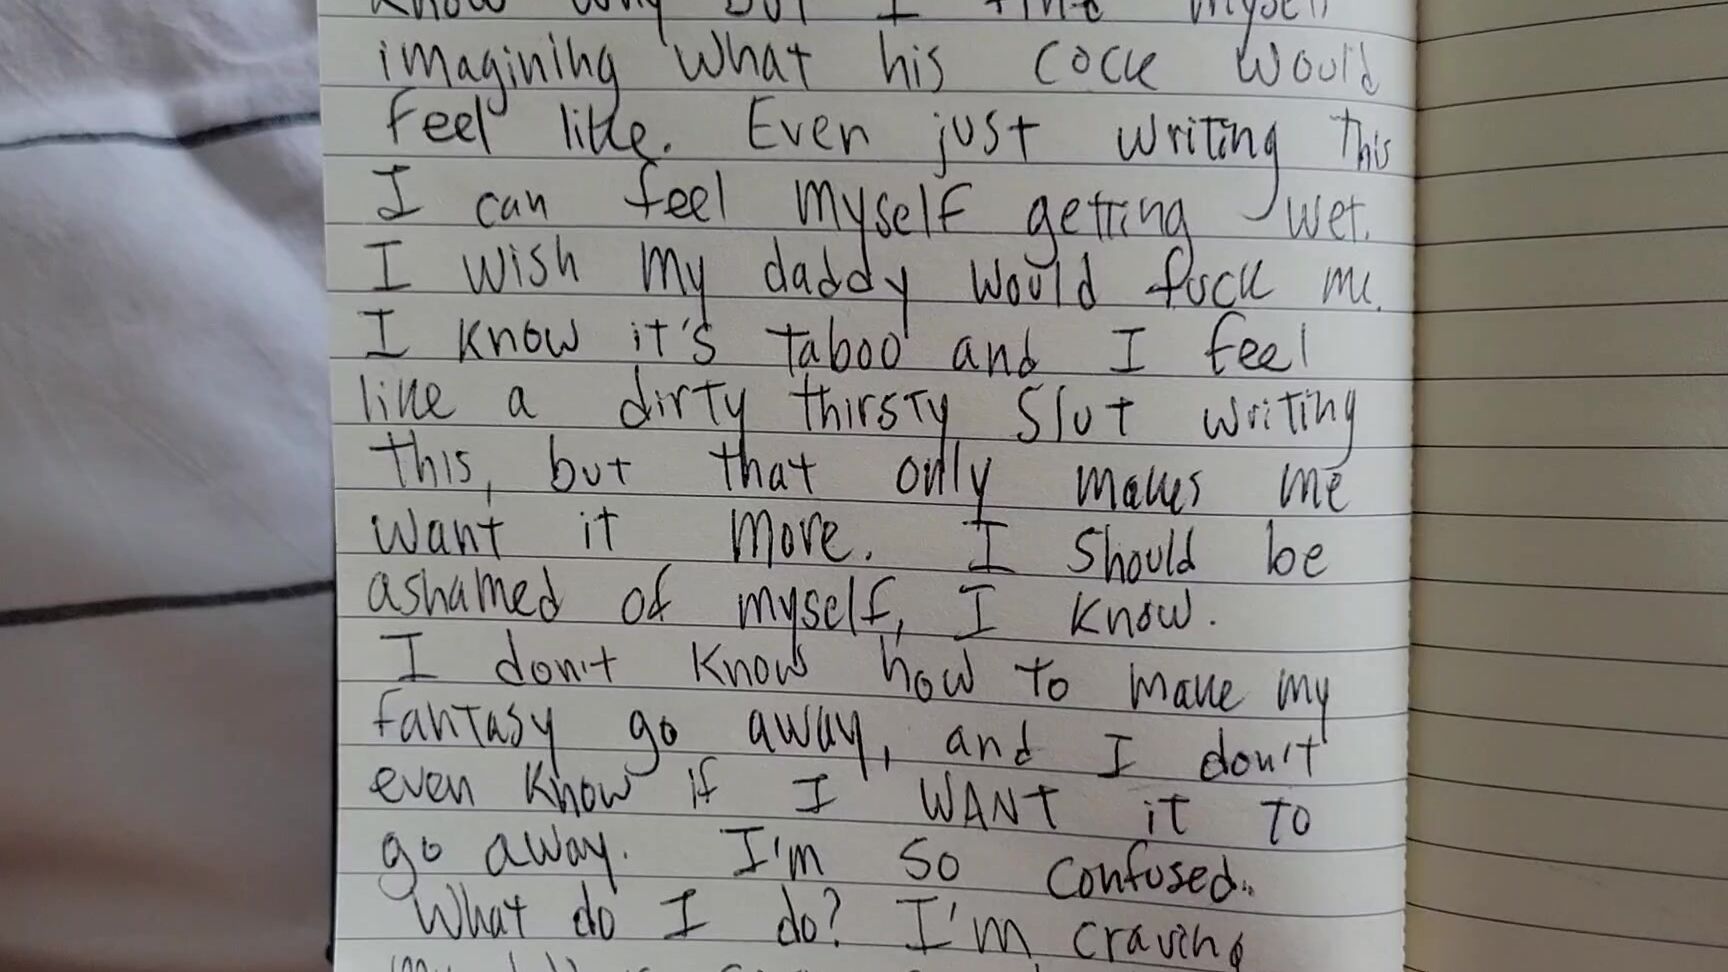 imagining what his cock would
feel like. Even just writing this
I can feel myself getting wet.
I wish my daddy would fuck me.
I know it's taboo and I feel
like a dirty thirsty slut writing
this, but that only makes me
want it more. I should be
ashamed of myself, I know.
I don't know how to make my
fantasy go away, and I don't
even know if I WANT it to
go away. I'm so confused..
What do I do? I'm craving